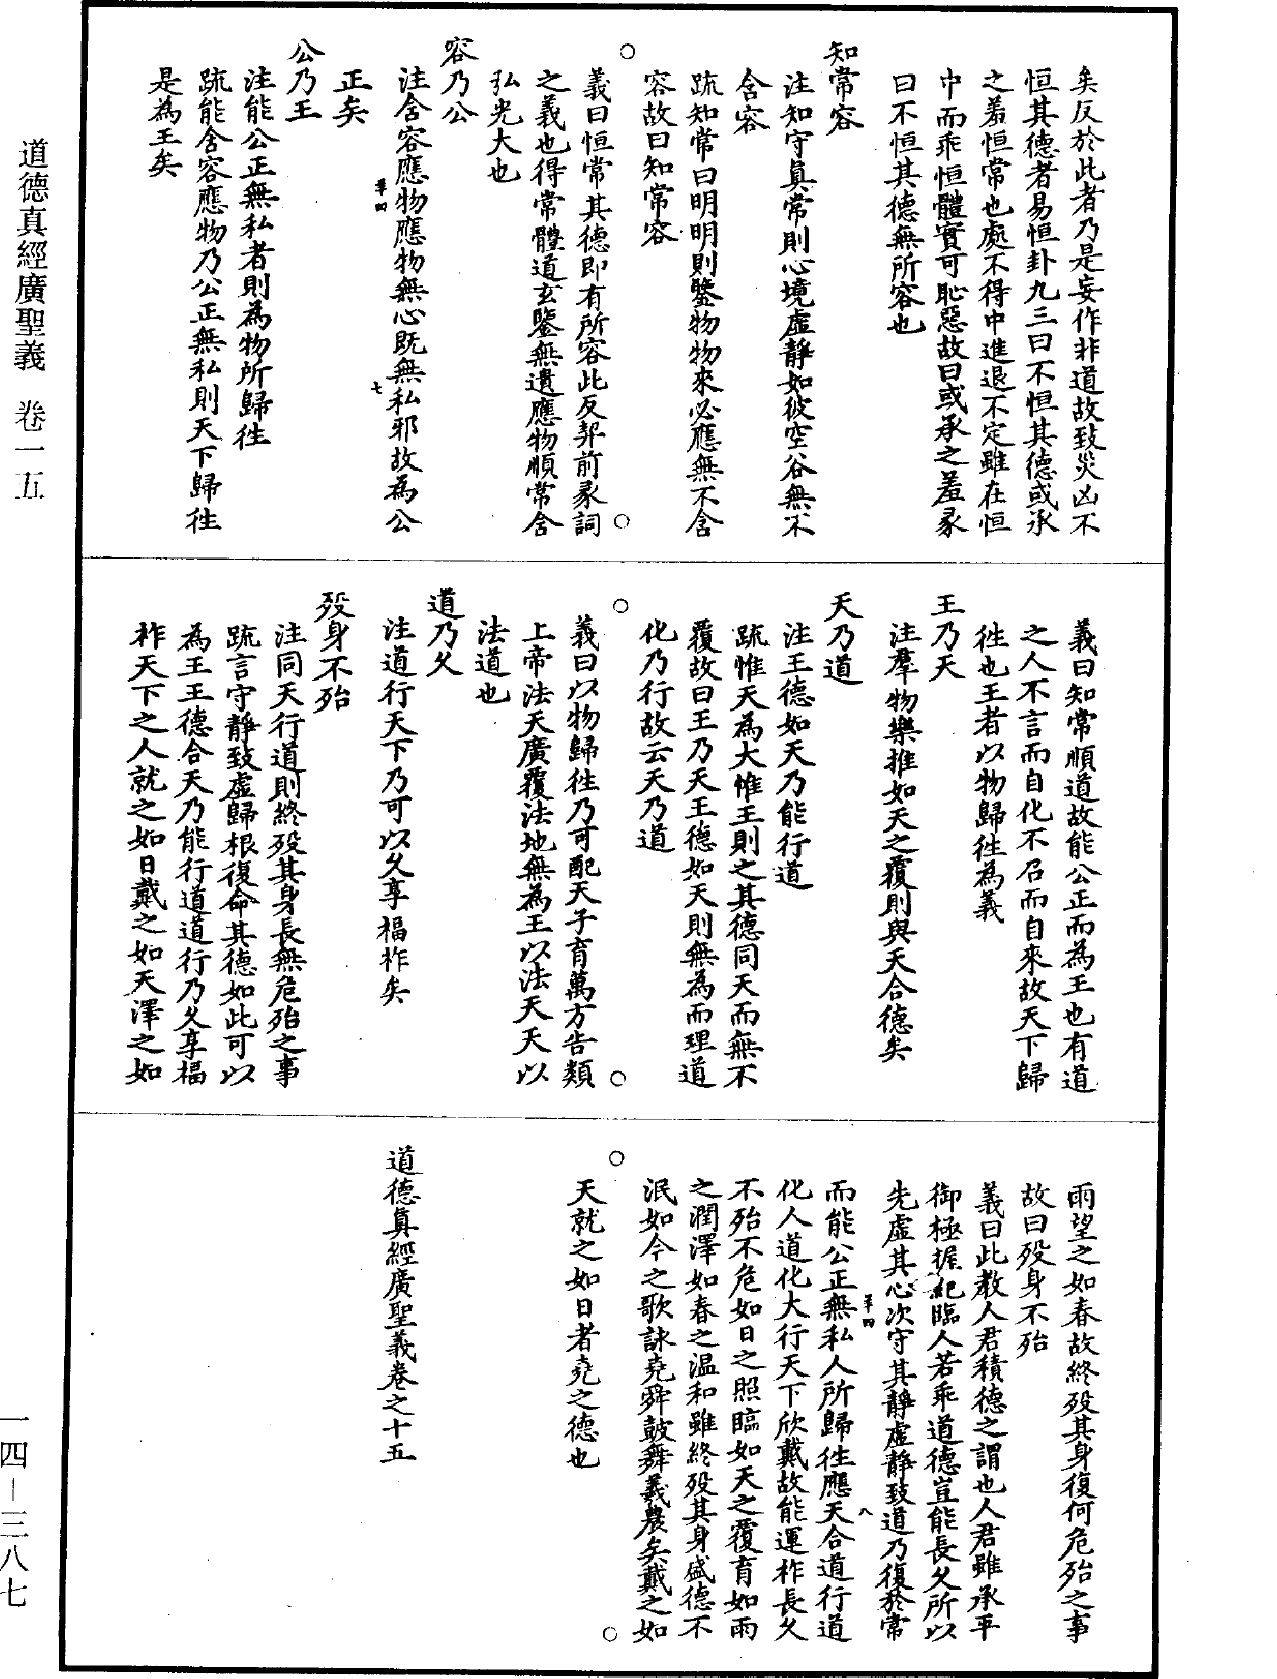 矣反於此者乃是妄作非道故致災凶不
恒其德者易恒卦九三曰不恒其德或承
之羞恒常也處不得中進退不定雖在恒
中而乖恒體實可恥惡故曰或承之羞彖
曰不恒其德無所容也
知常容
注知守真常則心境虛靜如彼空谷無不
含容
疏知常曰明明則鑒物物來必應無不含
容故曰知常容
義曰恒常其德即有所容此反契前彖詞
之義也得常體道玄鑒無遺應物順常含
弘光大也
容乃公
注含容應物應物無心既無私邪故為公
正矣
公乃王
注能公正無私者則為物所歸往
疏能含容應物乃公正無私則天下歸往
是為王矣
義曰知常順道故能公正而為王也有道
之人不言而自化不召而自來故天下歸
往也王者以物歸往為義
王乃天
注羣物樂推如天之覆則與天合德矣
天乃道
注王德如天乃能行道
疏惟天為大惟王則之其德同天而無不
覆故曰王乃天王德如天則無為而理道
化乃行故云天乃道
義曰以物歸往乃可配天子育萬方告類
上帝法天廣覆法地無為王以法天天以
法道也
道乃久
注道行天下乃可以久享福祚矣
歿身不殆
注同天行道則終歿其身長無危殆之事
疏言守靜致虛歸根復命其德如此可以
為王王德合天乃能行道道行乃久享福
祚天下之人就之如日戴之如天澤之如
雨望之如春故終歿其身復何危殆之事
故曰歿身不殆
義曰此教人君積德之謂也人君雖承平
御極握紀臨人若乖道德豈能長久所以
先虛其心次守其靜虛靜致道乃復於常
而能公正無私人所歸往應天合道行道
化人道化大行天下欣戴故能運祚長久
不殆不危如日之照臨如天之覆育如雨
之潤澤如春之温和雖終歿其身盛德不
泯如今之歌詠堯舜鼓舞羲農矣戴之如
天就之如日者堯之德也
道德真經廣聖義卷之十五
道德真經廣聖義 卷一五
一四—三八七